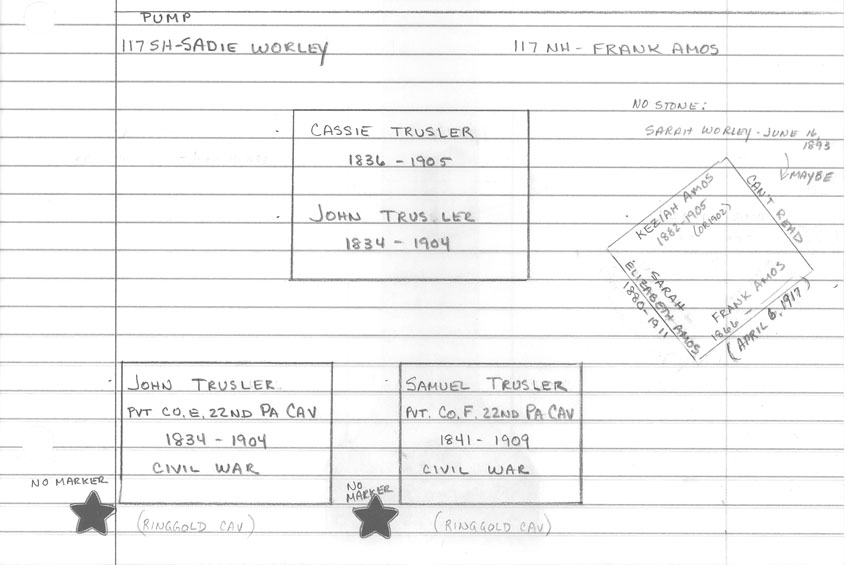 PUMP
117 SH-SADIE WORLEY
117 NH - FRANK AMOS
NO STONE:
SARAH WORLEY - JUNE 16,
1893
MAYBE
CASSIE TRUSLER
1836 - 1905
JOHN TRUSLER
1834 - 1904
KEZIAH AMOS
1882-1905
(OR 1902)
CAN'T READ
SARAH
ELIZABETH AMOS
1880-1911
FRANK AMOS
1866 -
(APRIL 6, 1917)
JOHN TRUSLER
PVT CO, E, 22ND PA CAV
1834 - 1904
CIVIL WAR
SAMUEL TRUSLER
PVT. CO, F, 22ND PA CAV
1841 - 1909
CIVIL WAR
NO MARKER
NO
MARKER
(RINGGOLD CAV)
(RINGGOLD CAV)